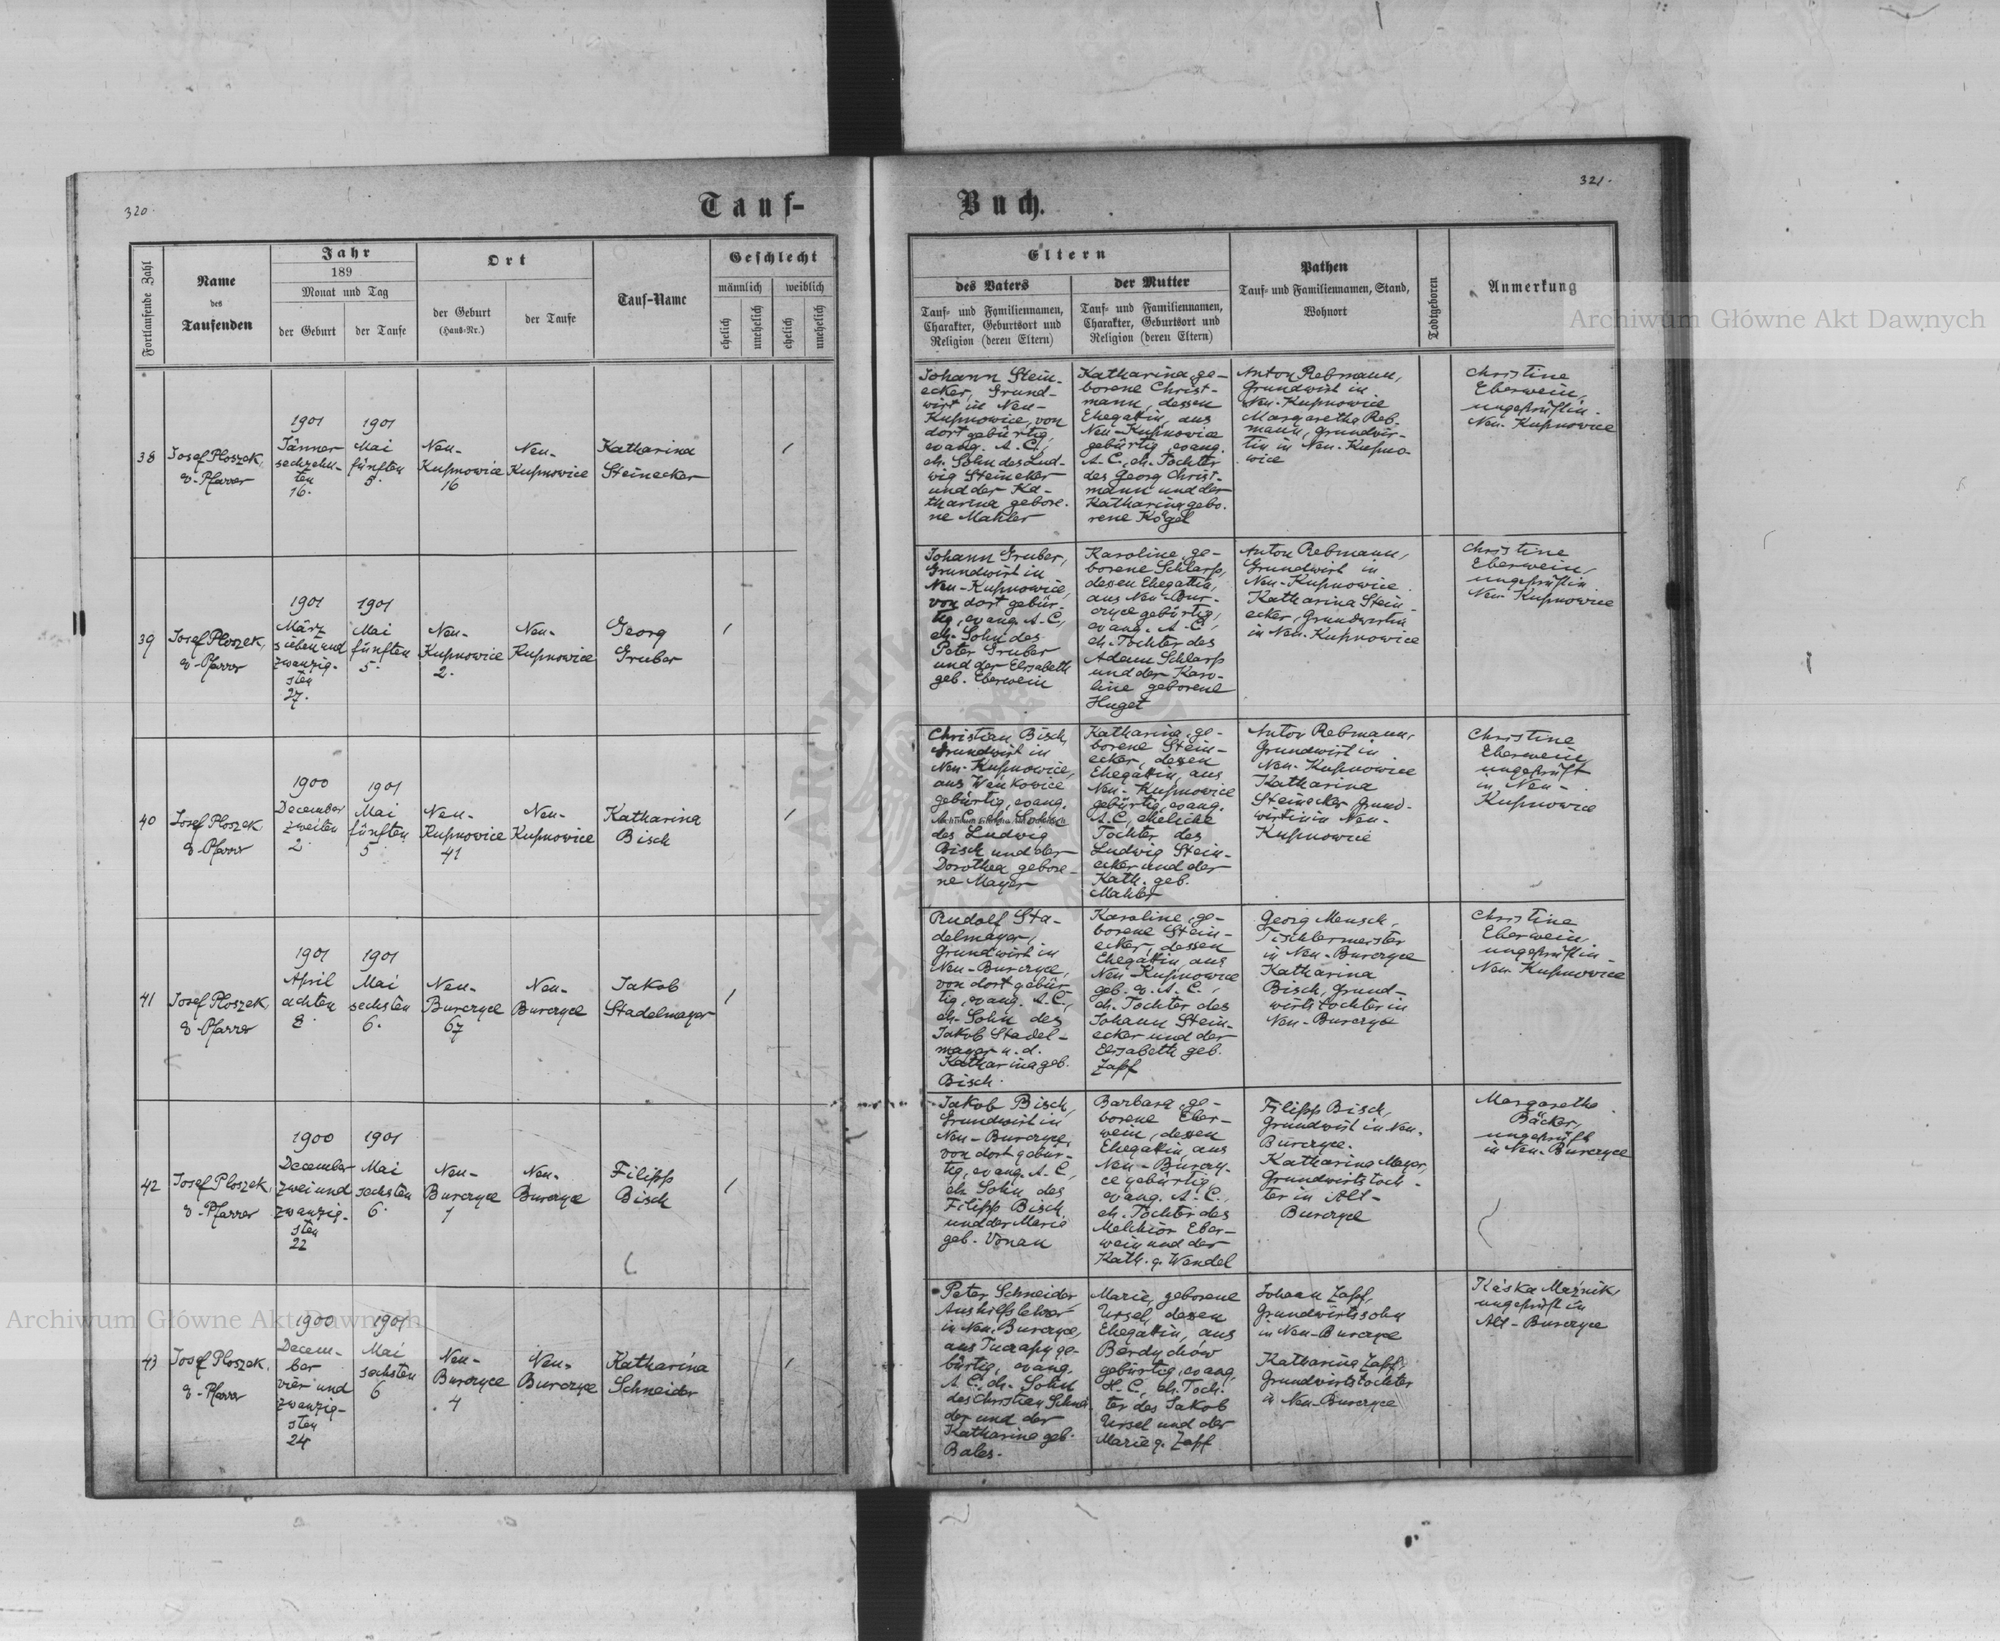 320.
321.
Tauf-
Buch.
Fortlaufende Zahl
Name
des
Taufenden
Jahr
189
Monat und Tag
der Geburt
der Taufe
Ort
der Geburt
(Haus-Nr.)
der Taufe
Tauf-Name
Geschlecht
männlich
weiblich
ehelich
unehelich
ehelich
unehelich
Eltern
des Vaters
Tauf- und Familiennamen,
Charakter, Geburtsort und
Religion (deren Eltern)
der Mutter
Tauf- und Familiennamen,
Charakter, Geburtsort und
Religion (deren Eltern)
Pathen
Tauf- und Familiennamen, Stand,
Wohnort
Todtgeboren
Anmerkung
Archiwum Główne Akt Dawnych
38
Josef Ploszek,
ev-Pfarrer
1901
Jänner
sechzehn-
ten
16.
1901
Mai
fünften
5.
Neu-
Kupnowice
16
Neu-
Kupnowice
Katharina
Steinecker
1
Johann Stein-
ecker, Grund-
wirt in Neu-
Kupnowice, von
dort gebürtig,
evang. A. C.,
eh. Sohn des Lud-
wig Steinecker
und der Ka-
tharina gebore-
ne Mahler
Katharina, ge-
borene Christ-
mann, dessen
Ehegattin, aus
Neu-Kupnowice
gebürtig, evang.
A. C., eh. Tochter
des Georg Christ-
mann und der
Katharina gebo-
rene Kögel
Anton Rebmann,
Grundwirt in
Neu-Kupnowice
Margaretha Reb-
mann, Grundwir-
tin in Neu-Kupno-
wice
Christine
Eberwein,
ungeprüft in
Neu-Kupnowice
39
Josef Ploszek,
ev-Pfarrer
1901
März
sieben und
zwanzig-
sten
27.
1901
Mai
fünften
5.
Neu-
Kupnowice
2.
Neu-
Kupnowice
Georg
Gruber
1
Johann Gruber,
Grundwirt in
Neu-Kupnowice,
von dort gebür-
tig, evang. A. C.,
eh. Sohn des
Peter Gruber
und der Elisabeth
geb. Eberwein
Karoline, ge-
borene Schlarp,
dessen Ehegattin,
aus Neu-Bur-
czyce gebürtig,
evang. A. C.,
eh. Tochter des
Adam Schlarp
und der Karo-
line geborene
Huget
Anton Rebmann,
Grundwirt in
Neu-Kupnowice
Katharina Stein-
ecker, Grundwirtin
in Neu-Kupnowice
Christine
Eberwein,
ungeprüft in
Neu-Kupnowice
40
Josef Ploszek
ev-Pfarrer
1900
December
zweiten
2.
1901
Mai
fünften
5.
Neu-
Kupnowice
41
Neu-
Kupnowice
Katharina
Bisch
1
Christian Bisch,
Grundwirt in
Neu-Kupnowice,
aus Wankowice
gebürtig, evang.
A. C., eh. Sohn
des Ludwig
Bisch und der
Dorothea gebore-
ne Mayer
Katharina, ge-
borene Stein-
ecker, dessen
Ehegattin, aus
Neu-Kupnowice
gebürtig, evang.
A. C., eheliche
Tochter des
Ludwig Stein-
ecker und der
Kath. geb.
Mahler
Anton Rebmann,
Grundwirt in
Neu-Kupnowice
Katharina
Steinecker Grund-
wirtin in Neu-
Kupnowice
Christine
Eberwein,
ungeprüft
in Neu-
Kupnowice
41
Josef Ploszek,
ev-Pfarrer
1901
April
achten
8.
1901
Mai
sechsten
6.
Neu-
Burczyce
67
Neu-
Burczyce
Jakob
Stadelmayer
1
Rudolf Sta-
delmayer,
Grundwirt in
Neu-Burczyce,
von dort gebür-
tig, evang. A. C.,
eh. Sohn des
Jakob Stadel-
mayer u. d.
Katharina geb.
Bisch.
Karoline, ge-
borene Stein-
ecker, dessen
Ehegattin, aus
Neu-Kupnowice
geb. ev. A. C.,
eh. Tochter des
Johann Stein-
ecker und der
Elisabeth geb.
Zapf
Georg Mensch,
Tischlermeister
in Neu-Burczyce
Katharina
Bisch, Grund-
wirtstochter in
Neu-Burczyce
Christine
Eberwein,
ungeprüft in
Neu-Kupnowice
42
Josef Ploszek,
ev-Pfarrer
1900
December
zwei und
zwanzig-
sten
22
1901
Mai
sechsten
6.
Neu-
Burczyce
1
Neu-
Burczyce
Filipp
Bisch
1
Jakob Bisch,
Grundwirt in
Neu-Burczyce,
von dort gebür-
tig, evang. A. C.,
eh. Sohn des
Filipp Bisch
und der Marie
geb. Vonau
Barbara, ge-
borene Eber-
wein, dessen
Ehegattin, aus
Neu-Burczy-
ce gebürtig,
evang. A. C.,
eh. Tochter des
Melchior Eber-
wein und der
Kath. g. Wendel
Filipp Bisch,
Grundwirt in Neu-
Burczyce.
Katharina Mayer,
Grundwirtstoch-
ter in Alt-
Burczyce
Margaretha
Bäcker,
ungeprüft
in Neu-Burczyce
43
Josef Ploszek,
ev-Pfarrer
1900
Decem-
ber
vier und
zwanzig-
sten
24
1901
Mai
sechsten
6
Neu-
Burczyce
4
Neu-
Burczyce
Katharina
Schneider
1
Peter Schneider
Aushilfslehrer
in Neu-Burczyce,
aus Tucapy ge-
bürtig, evang.
A. C., eh. Sohn
des Christian Schnei-
der und der
Katharina geb.
Bales.
Marie, geborene
Ursel, dessen
Ehegattin, aus
Berdychów
gebürtig, evang.
H. C., eh. Toch-
ter des Jakob
Ursel und der
Marie g. Zapf
Johann Zapf,
Grundwirtssohn
in Neu-Burczyce
Katharina Zapf,
Grundwirtstochter
in Neu-Burczyce
Káska Maźnik,
ungeprüft in
Alt-Burczyce
Archiwum Główne Akt Dawnych